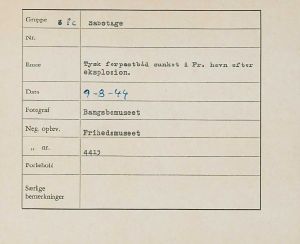 Gruppe 8 fc Sabotage
Nr.
Emne Tysk forpostbåd sunket i Fr. havn efter
eksplosion.
Dato 9-8-44
Fotograf Bangsbomuseet
Neg. opbev. Frihedsmuseet
„ nr. 4415
Forbehold
Særlige
bemærkninger